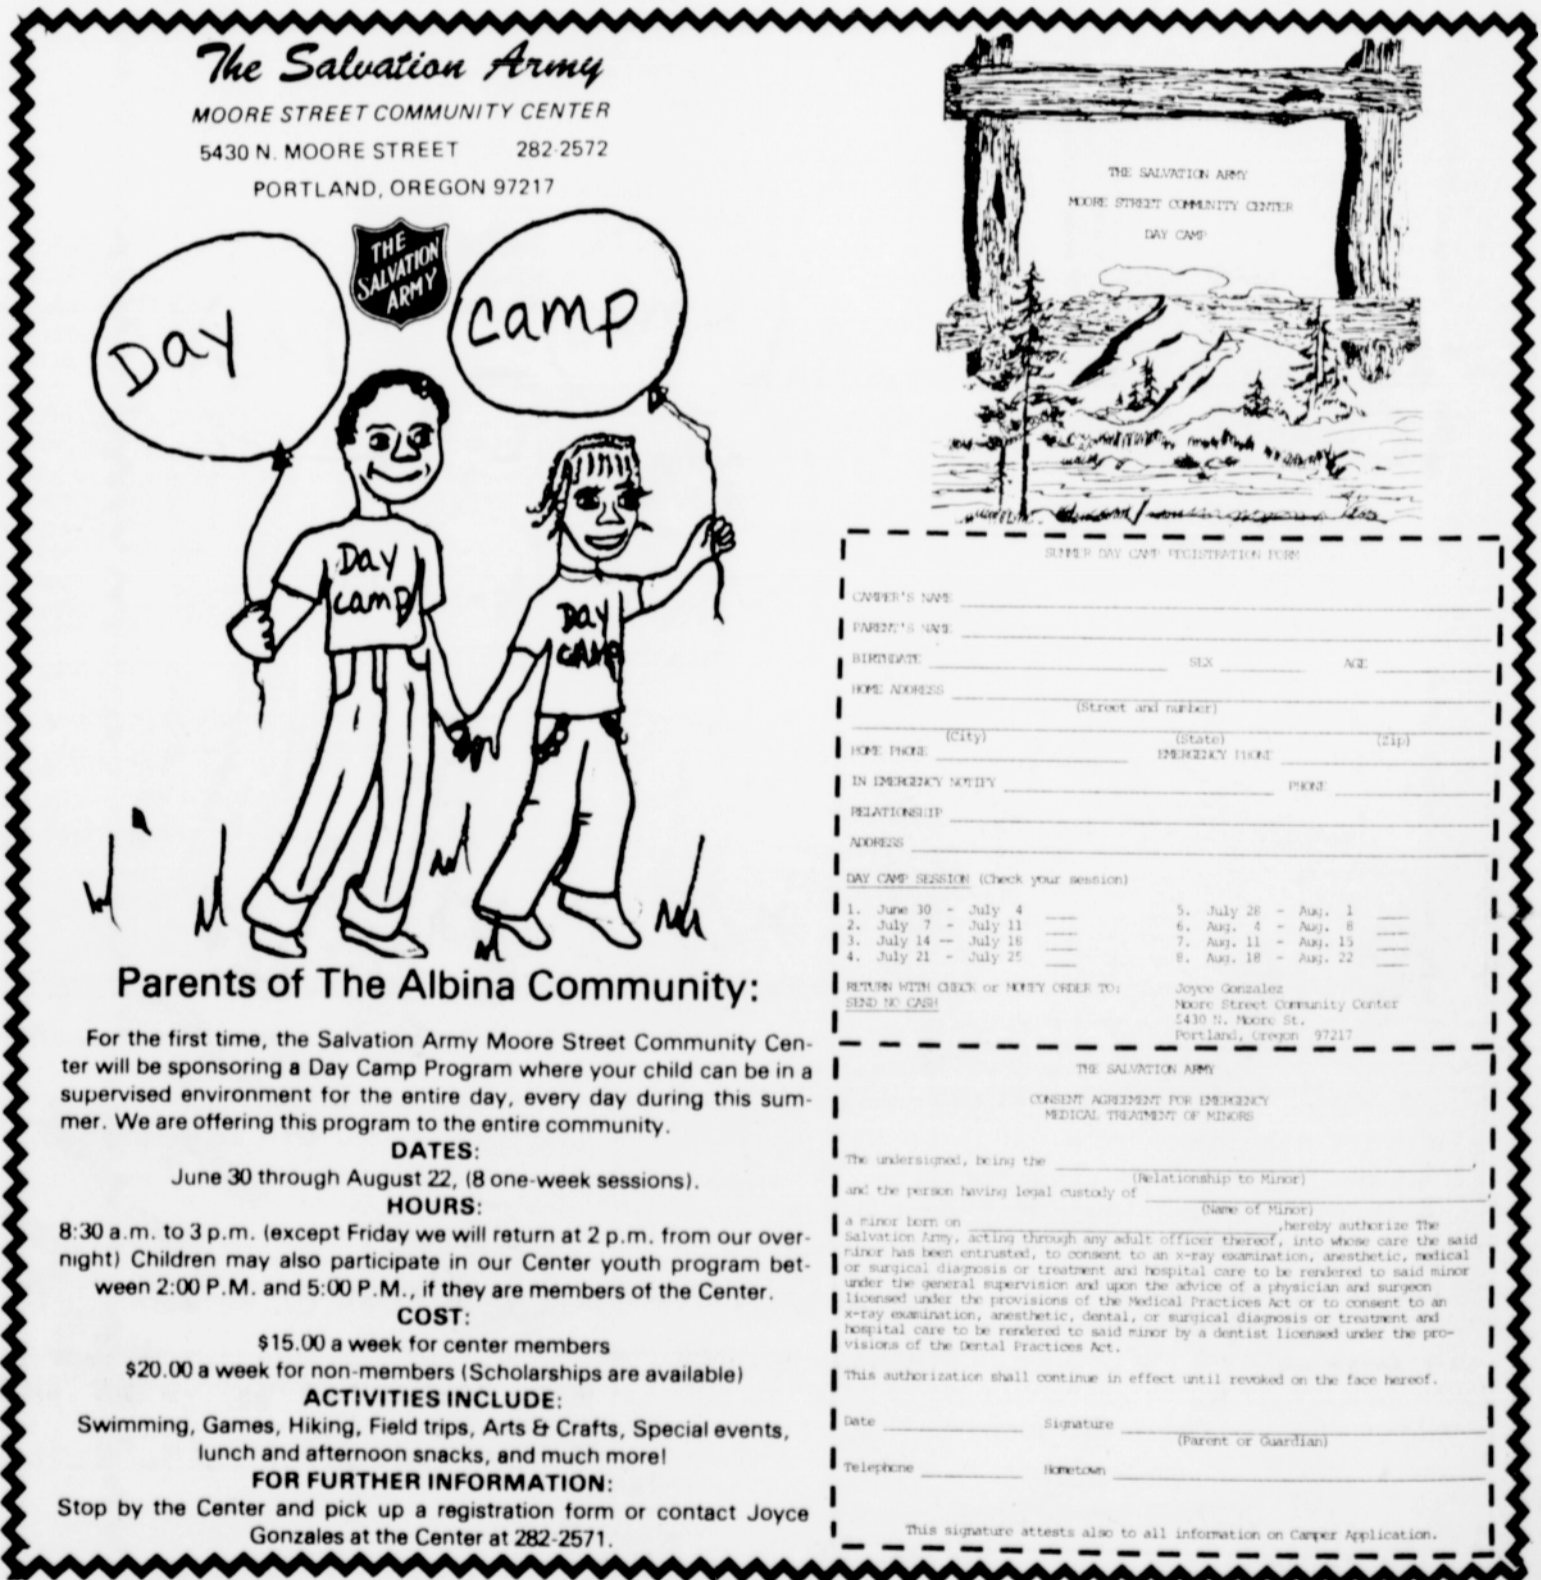 The Salvation Army
MOORE STREET COMMUNITY CENTER
5430 N. MOORE STREET 282-2572
PORTLAND, OREGON 97217
THE
SALVATION
ARMY
Day
Camp
Day
Camp
DAY
CAMP
Parents of The Albina Community:
For the first time, the Salvation Army Moore Street Community Cen-
ter will be sponsoring a Day Camp Program where your child can be in a
supervised environment for the entire day, every day during this sum-
mer. We are offering this program to the entire community.
DATES:
June 30 through August 22, (8 one-week sessions).
HOURS:
8:30 a.m. to 3 p.m. (except Friday we will return at 2 p.m. from our over-
night) Children may also participate in our Center youth program bet-
ween 2:00 P.M. and 5:00 P.M., if they are members of the Center.
COST:
$15.00 a week for center members
$20.00 a week for non-members (Scholarships are available)
ACTIVITIES INCLUDE:
Swimming, Games, Hiking, Field trips, Arts & Crafts, Special events,
lunch and afternoon snacks, and much more!
FOR FURTHER INFORMATION:
Stop by the Center and pick up a registration form or contact Joyce
Gonzales at the Center at 282-2571.
THE SALVATION ARMY
MOORE STREET COMMUNITY CENTER
DAY CAMP
SUMMER DAY CAMP REGISTRATION FORM
CAMPER'S NAME
PARENT'S NAME
BIRTHDATE SEX AGE
HOME ADDRESS
(Street and number)
(City) (State) (Zip)
HOME PHONE EMERGENCY PHONE
IN EMERGENCY NOTIFY PHONE
RELATIONSHIP
ADDRESS
DAY CAMP SESSION (Check your session)
1. June 30 - July 4 5. July 28 - Aug. 1
2. July 7 - July 11 6. Aug. 4 - Aug. 8
3. July 14 -- July 18 7. Aug. 11 - Aug. 15
4. July 21 - July 25 8. Aug. 18 - Aug. 22
RETURN WITH CHECK or MONEY ORDER TO: Joyce Gonzalez
SEND NO CASH Moore Street Community Center
5430 N. Moore St.
Portland, Oregon 97217
THE SALVATION ARMY
CONSENT AGREEMENT FOR EMERGENCY
MEDICAL TREATMENT OF MINORS
The undersigned, being the ,
(Relationship to Minor)
and the person having legal custody of ,
(Name of Minor)
a minor born on ,hereby authorize The
Salvation Army, acting through any adult officer thereof, into whose care the said
minor has been entrusted, to consent to an x-ray examination, anesthetic, medical
or surgical diagnosis or treatment and hospital care to be rendered to said minor
under the general supervision and upon the advice of a physician and surgeon
licensed under the provisions of the Medical Practices Act or to consent to an
x-ray examination, anesthetic, dental, or surgical diagnosis or treatment and
hospital care to be rendered to said minor by a dentist licensed under the pro-
visions of the Dental Practices Act.
This authorization shall continue in effect until revoked on the face hereof.
Date Signature
(Parent or Guardian)
Telephone Hometown
This signature attests also to all information on Camper Application.